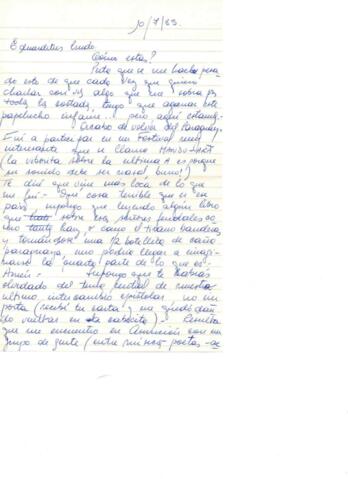 10/7/83.
Eduarditus lindo.
Cómo estas?
Puta que se me hace pesa
do esto de que cada vez que quiero
charlar con vs algo que me sobra ps
toda la voltada, tengo que agarrar este
papelucho infame... pero aquí estamos.
Acabo de volver del Paraguay.
Fui a participar en un Festival muy
interesante que se llama MANDU'ARÃ
(la viborita sobre la última A es porque
su sonido debe ser nasal, bueno!)
Te diré que vine más loca de lo que
me fui. Que cosa terrible que es ese
país, supongo que leyendo algún libro
que sobre esos señores feudales co
mo hay, como el tirano banderas
y tomándose una 1/2 botellita de caña
paraguaya, uno podría llegar a imagi
narse la cuarta parte de lo que es.
Amén. Supongo que te habrás
olvidado del tema puntual de nuestro
último intercambio epistolar. no im
porta (recibí tu carta y me quedó dan
do vueltas en la cabecita) - Resulta
que me encuentro en Asunción con un
grupo de gente (entre músicos, poetas